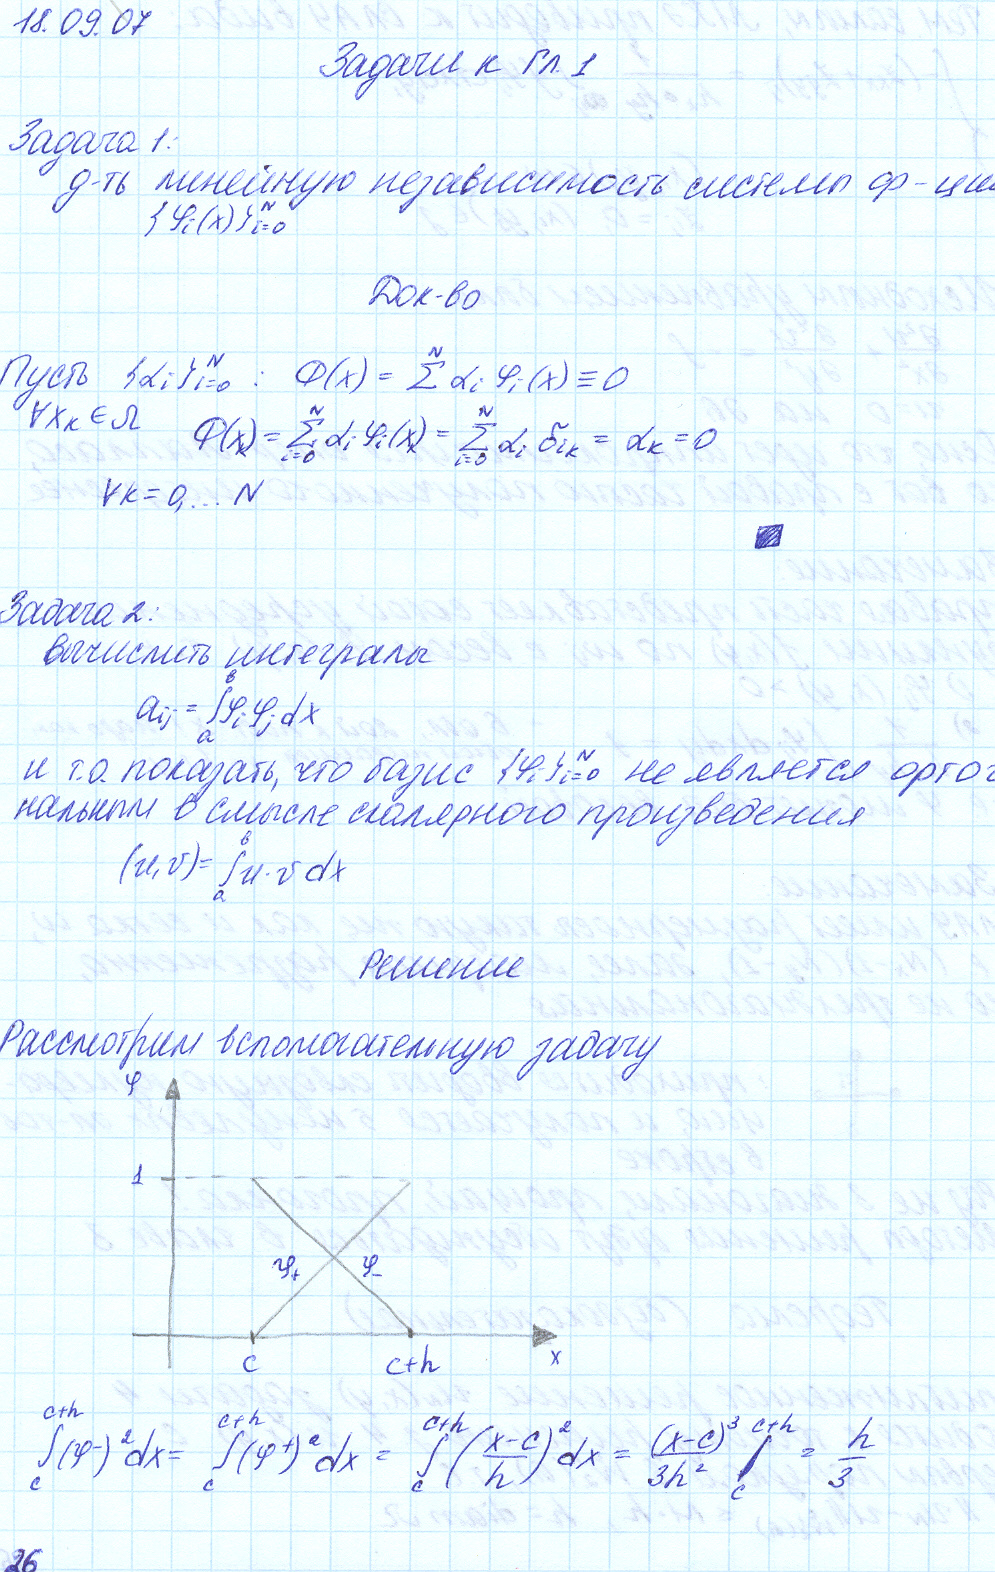 18.09.07
Задачи к Гл. 1
Задача 1:
д-ть линейную независимость системы ф-ций
{φᵢ(x)}ᵢ₌₀ᴺ
Док-во
Пусть {αᵢ}ᵢ₌₀ᴺ : Φ(x) = Σᴺ αᵢ φᵢ(x) ≡ 0
∀xₖ ∈ Ω Φ(xₖ) = Σᵢ₌₀ᴺ αᵢ φᵢ(xₖ) = Σᵢ₌₀ᴺ αᵢ δᵢₖ = αₖ = 0
∀k = 0, ... N
Задача 2:
вычислить интегралы
aᵢⱼ = ∫ₐᵇ φᵢ φⱼ dx
и т.о. показать, что базис {φᵢ}ᵢ₌₀ᴺ не является ортог
нальным в смысле скалярного произведения
(u, v) = ∫ₐᵇ u·v dx
Решение
Рассмотрим вспомогательную задачу
φ
1
φ₊ φ₋
c c+h x
∫_c^{c+h} (φ⁻)² dx = ∫_c^{c+h} (φ⁺)² dx = ∫_c^{c+h} ((x-c)/h)² dx = (x-c)³/3h² |_c^{c+h} = h/3
26